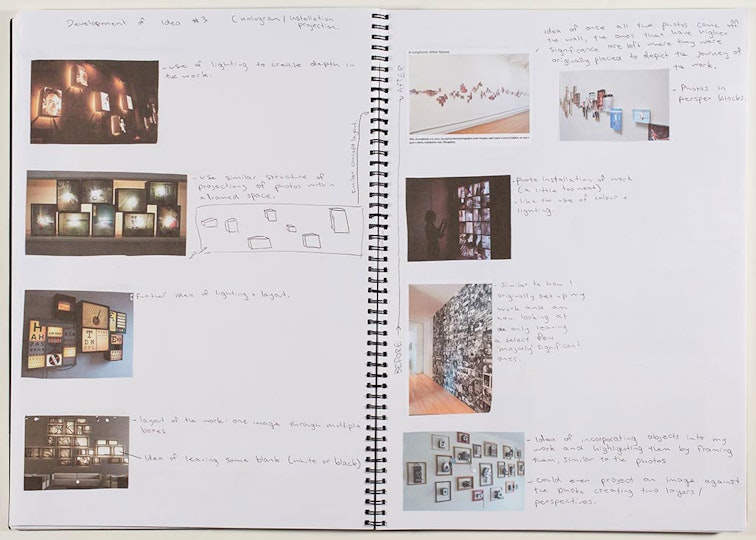 Development of Idea #3 (Hologram/installation
projection.
- use of lighting to crease depth in
the work.
- use similar structure of
projectiong of photos within
a framed space.
similar concept layout
Further idea of lighting + layout.
- layout of the work: one image through multiple
boxes
Idea of leaving some blank (white or black)
idea of once all the photos come off
the wall, the ones that have higher
significance are left where they were
originally placed to depict the journey of
the work.
AFTER
- Photos in
persper blocks.
- photo installation of work
(a little too neat)
- like the use of colour +
lighting
BEFORE
- similar to how I
originally set up my
work and am
now looking at
only leaving
a select few
majorly significant
ones.
- Idea of incorporating objects into my
work and highlighting them by framing
them, similar to the photos
- Could even project an image against
the photo creating two layers/
perspectives.